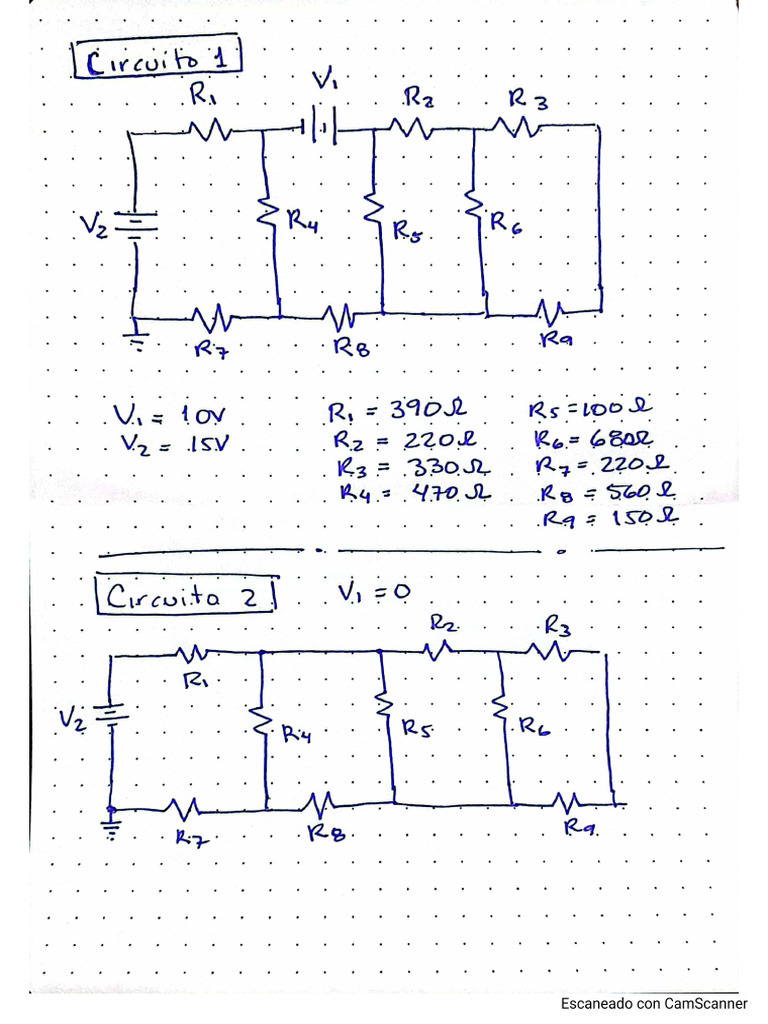 Circuito 1
V1
R1 R2 R3
V2 R4 R5 R6
R7 R8 R9
V1 = 10V R1 = 390Ω R5 = 100Ω
V2 = 15V R2 = 220Ω R6 = 680Ω
R3 = 330Ω R7 = 220Ω
R4 = 470Ω R8 = 560Ω
R9 = 150Ω
Circuito 2 V1 = 0
R2 R3
R1
V2 R4 R5 R6
R7 R8 R9
Escaneado con CamScanner